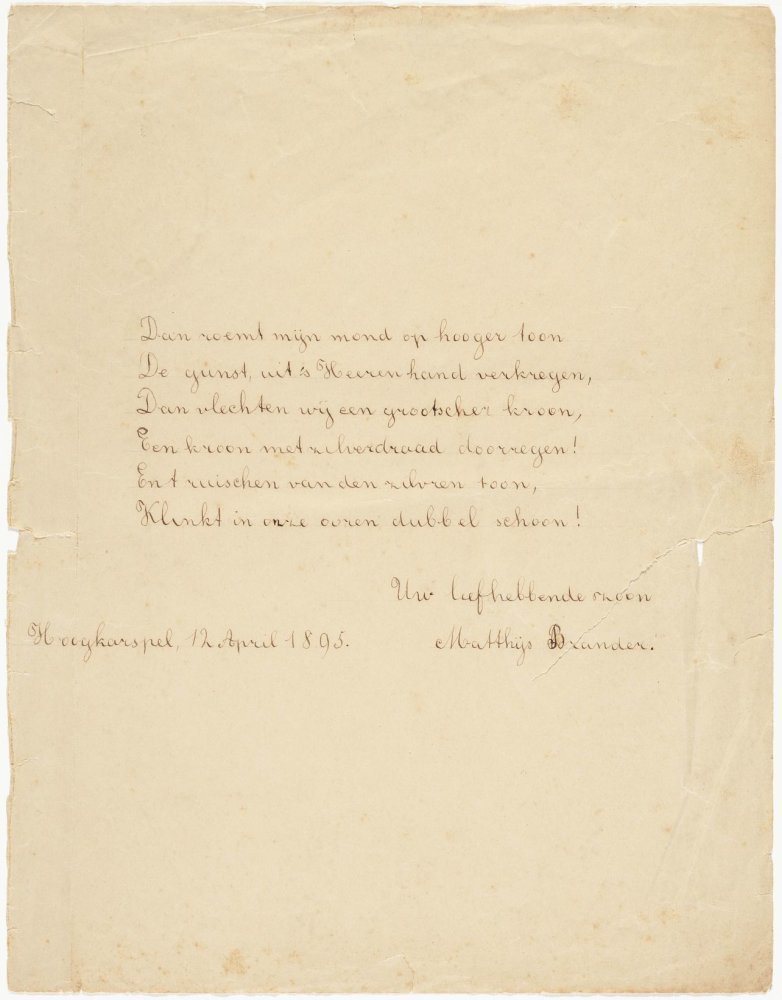 Dan roemt mijn mond op hooger toon
De gunst, uit 's Heeren hand verkregen,
Dan vlechten wij een grootscher kroon,
Een kroon met zilverdraad doorregen!
En t ruischen van den zilvren toon,
Klinkt in onze ooren dubbel schoon!
Uw liefhebbende zoon
Hoogkarspel, 12 April 1895. Matthijs Brander.